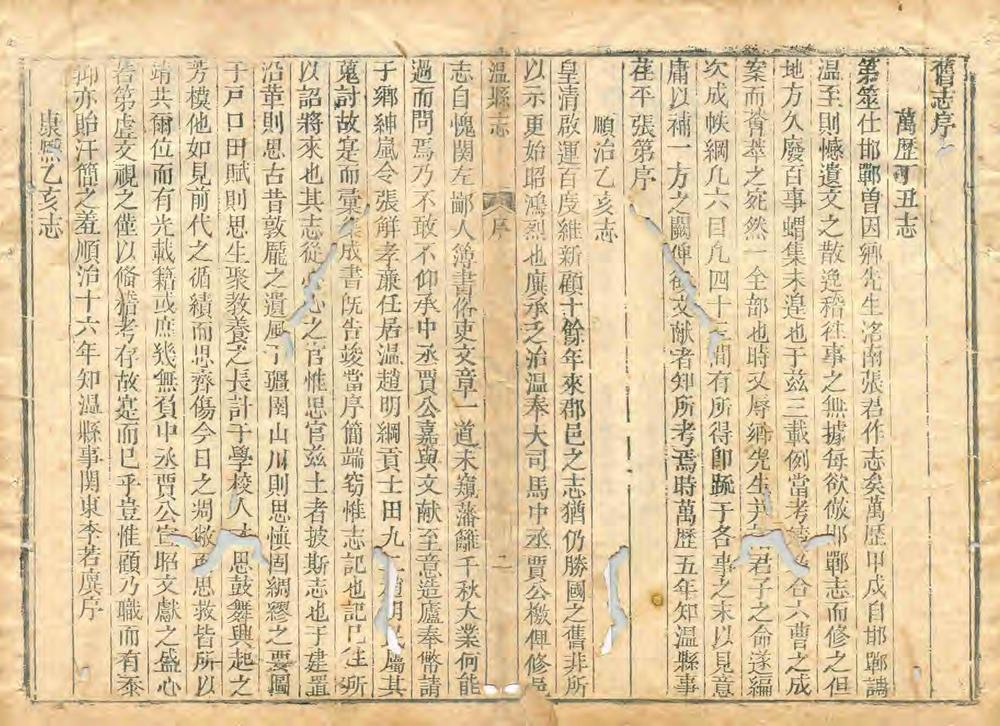 舊志序
萬歷丁丑志
第筮仕邯鄲曽因鄉先生洺南張君作志矣萬歷甲戌自邯鄲調
温至則憾遺文之散逸稽徃事之無據每欲倣邯鄲志而修之但
地方久廢百事蝟集未遑也于兹三載例當考 合六曹之成
案而薈萃之宛然一全部也時又辱鄉先生尹 君子之命遂編
次成帙綱凢六目凢四十 間有所得卽䟽于各事之末以見意
庸以補一方之闕俾 文献者知所考焉時萬歷五年知温縣事
茌平張第序
順治乙亥志
皇清啟運百度維新顧十餘年來郡邑之志猶仍勝國之舊非所
以示更始昭鴻烈也廙承乏治温奉大司馬中丞賈公檄俾修邑
温縣志 序 二
志自愧関左鄙人簿書俗吏文章一道未窺藩籬千秋大業何能
過而問焉乃不敢不仰承中丞賈公嘉與文献至意造廬奉幣請
于鄉紳嵐令張解孝亷任居温趙明綱貢士田九 趙明 屬其
蒐討故寔而彚 成書旣告竣當序簡端窃惟志記也記已徃所
以詔將來也其志從 心之官惟思官兹土者披斯志也于建置
沿革則思古昔敦龎之遺風于疆圉山川則思愼固綢繆之要圖
于戸口田賦則思生聚教養之長計于學校人 思鼓舞興起之
芳模他如見前代之循績而思齊傷今日之凋敝而思救皆所以
靖共爾位而有光載籍或庶幾無負中丞賈公 昭文獻之盛心
若第虛文視之僅以脩稽考存故寔而已乎豈惟顧乃職而有忝
抑亦貽汗簡之羞順治十六年知温縣事関東李若廙序
康熙乙亥志